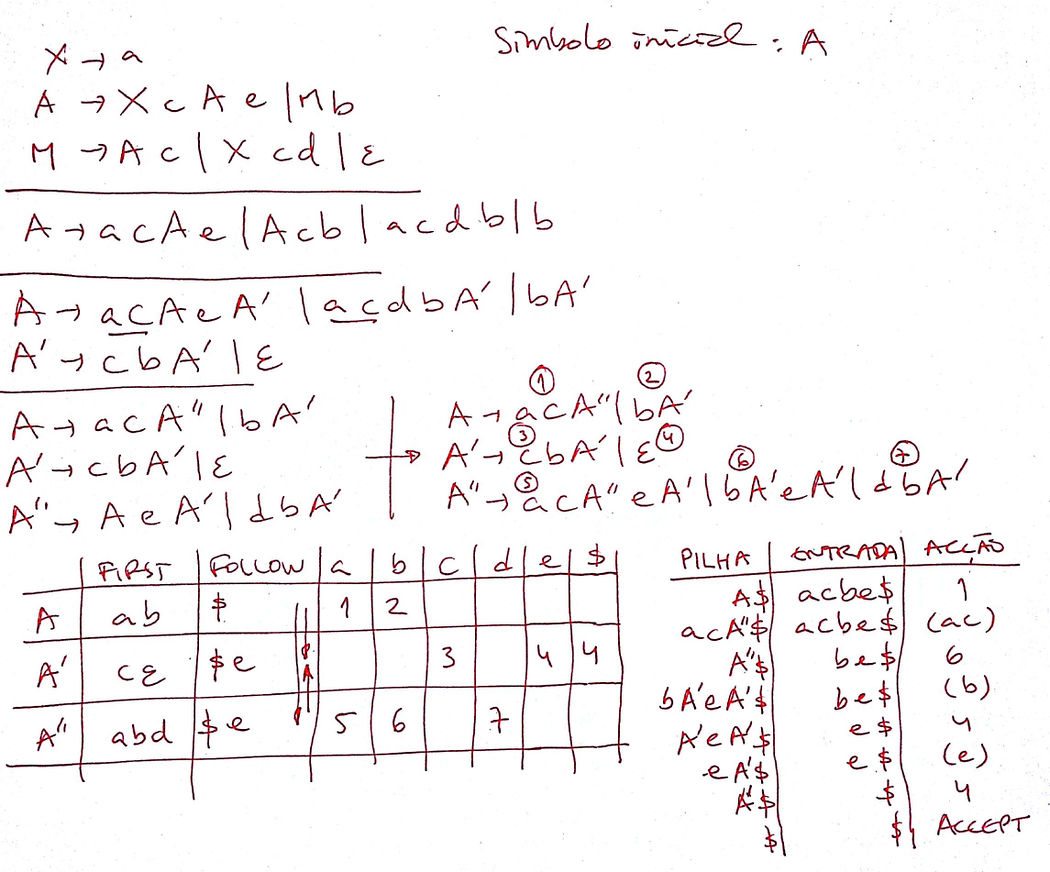 X → a
Símbolo inicial : A
A → X c A e | M b
M → A c | X c d | ε
A → a c A e | A c b | a c d b | b
A → a c A e A' | a c d b A' | b A'
A' → c b A' | ε
A → a c A'' | b A'
A' → c b A' | ε
A'' → A e A' | d b A'
① ②
A → a c A'' | b A'
③ ④
A' → c b A' | ε
⑤ ⑥ ⑦
A'' → a c A'' e A' | b A' e A' | d b A'
FIRST FOLLOW a b c d e $
A ab $ 1 2
A' cε $e 3 4 4
A'' abd $e 5 6 7
PILHA ENTRADA ACÇÃO
A$ acbe$ 1
acA''$ acbe$ (ac)
A''$ be$ 6
bA'eA'$ be$ (b)
A'eA'$ e$ 4
eA'$ e$ (e)
A'$ $ 4
$ $ ACCEPT